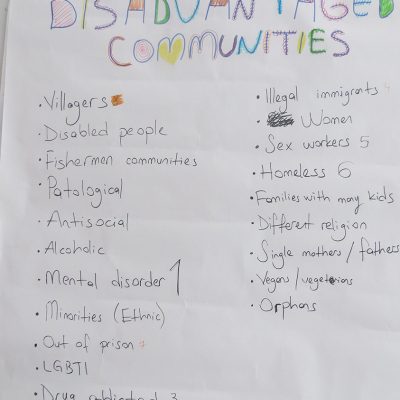 DISADVANTAGED
COMMUNITIES
• Villagers
• Disabled people
• Fishermen communities
• Patological
• Antisocial
• Alcoholic
• Mental disorder 1
• Minorities (Ethnic)
• Out of prison 4
• LGBTI
• Drug addicted 3
• Illegal immigrants 4
• Women
• Sex workers 5
• Homeless 6
• Families with many kids
• Different religion
• Single mothers / fathers
• Vegans / vegetarians
• Orphans